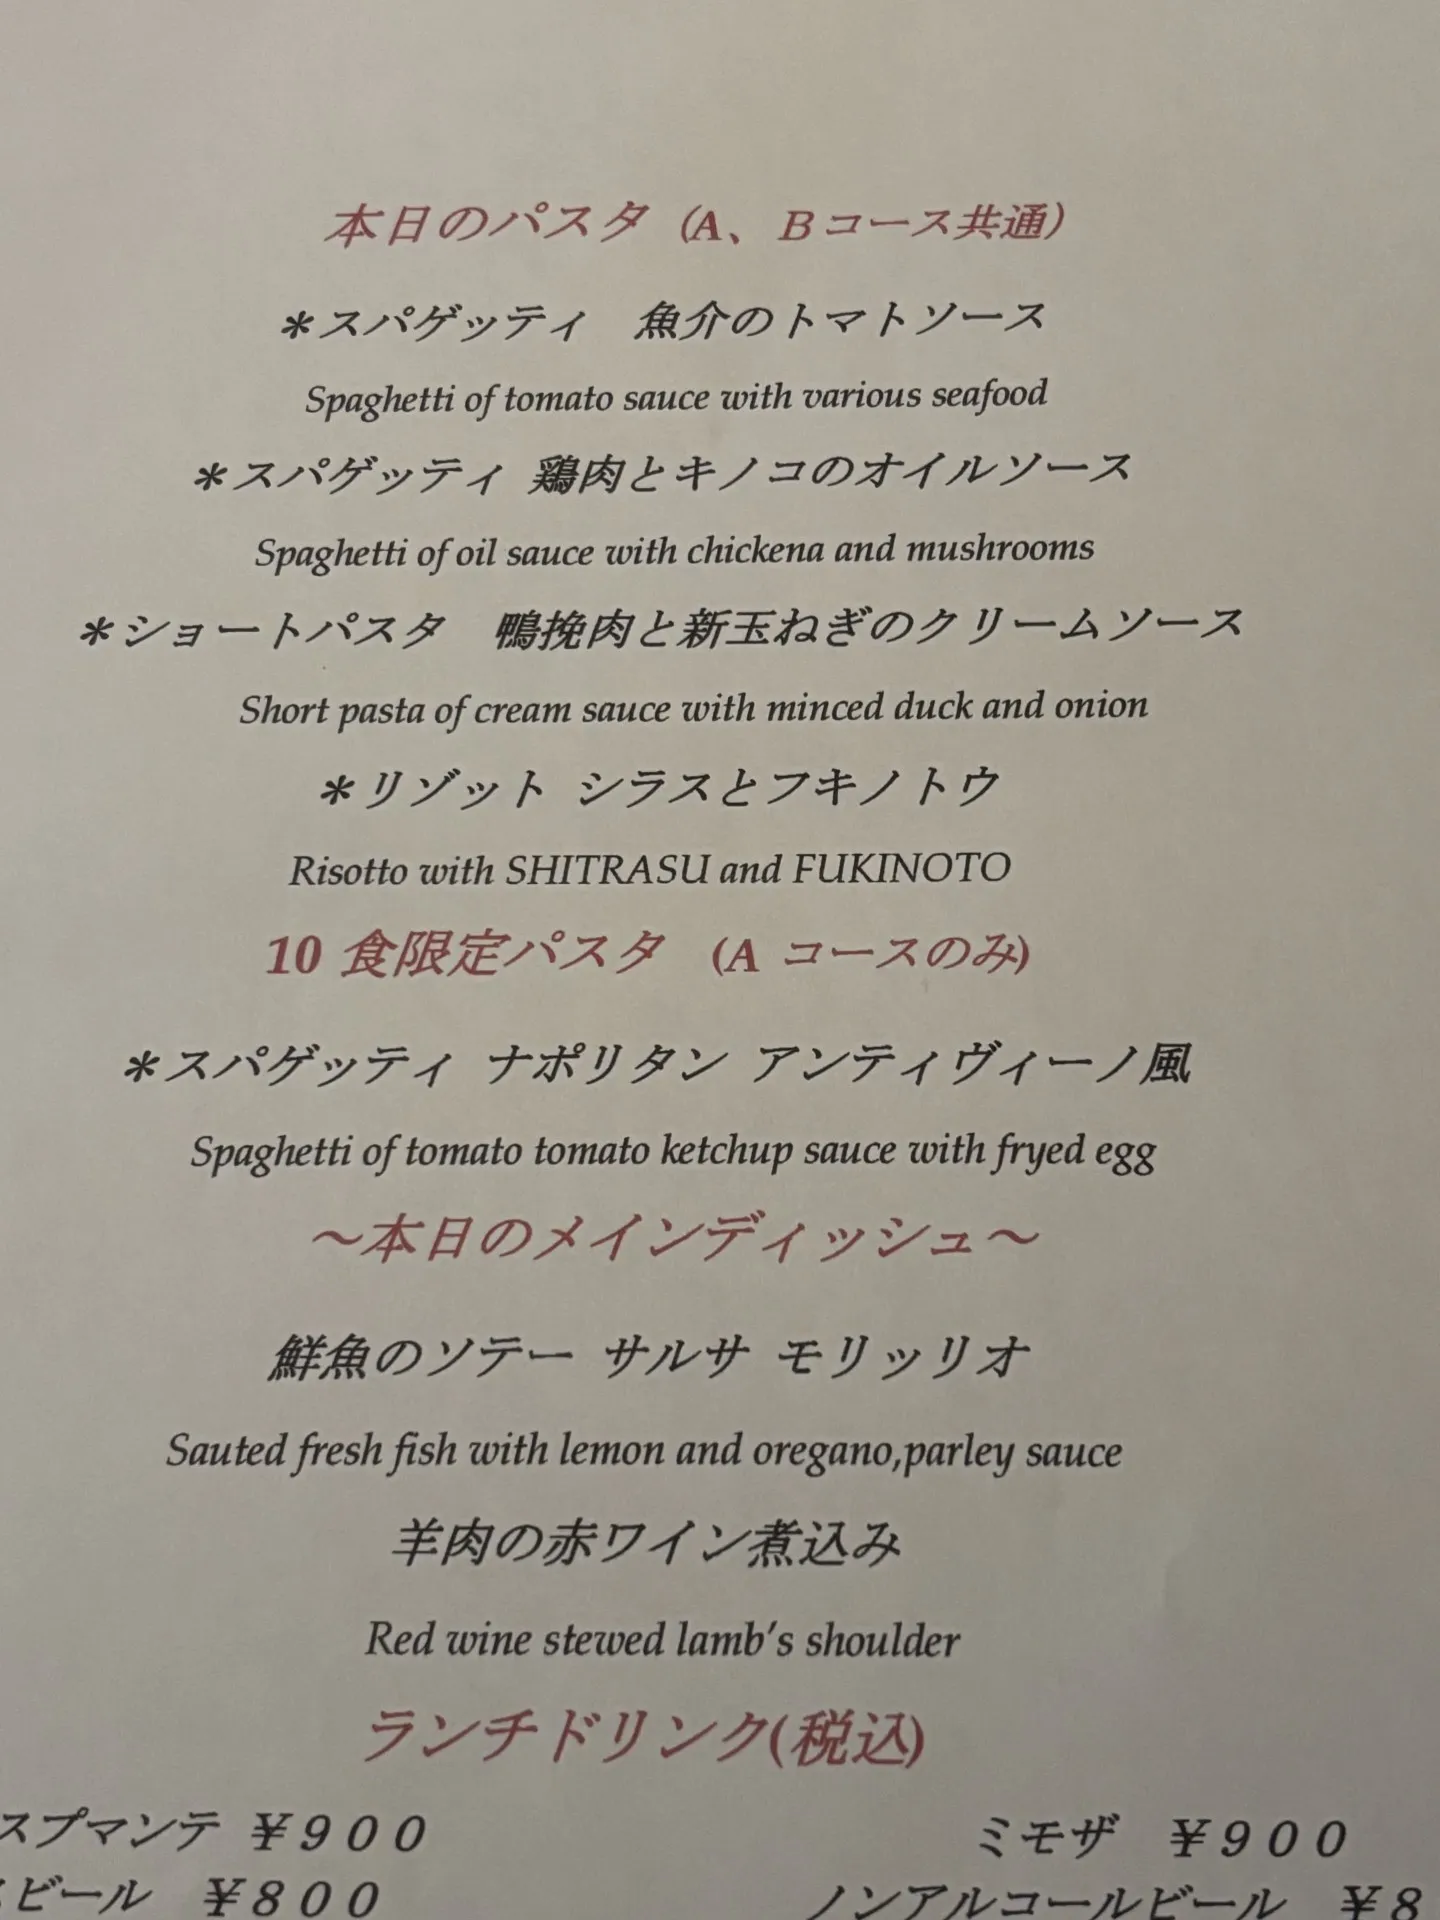 本日のパスタ（A、Bコース共通）
＊スパゲッティ　魚介のトマトソース
Spaghetti of tomato sauce with various seafood
＊スパゲッティ 鶏肉とキノコのオイルソース
Spaghetti of oil sauce with chickena and mushrooms
＊ショートパスタ　鴨挽肉と新玉ねぎのクリームソース
Short pasta of cream sauce with minced duck and onion
＊リゾット シラスとフキノトウ
Risotto with SHITRASU and FUKINOTO
10 食限定パスタ　(A コースのみ)
＊スパゲッティ ナポリタン アンティヴィーノ風
Spaghetti of tomato tomato ketchup sauce with fryed egg
～本日のメインディッシュ～
鮮魚のソテー サルサ モリッリオ
Sauted fresh fish with lemon and oregano,parley sauce
羊肉の赤ワイン煮込み
Red wine stewed lamb's shoulder
ランチドリンク(税込)
スプマンテ ￥９００　ミモザ　￥９００
ビール　￥８００　ノンアルコールビール　￥８